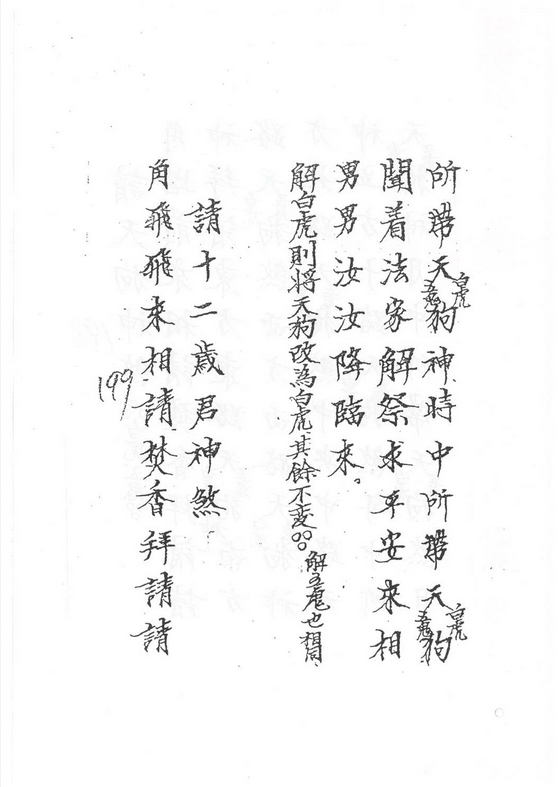 所帶天狗神時中所帶天狗
白虎
五鬼
白虎
五鬼
聞着法家解祭求平安來相
男男汝汝降臨來。
解白虎則將天狗改為白虎其餘不變。。解五鬼也相同
請十二歲君神煞
角飛飛來相請焚香拜請請
199